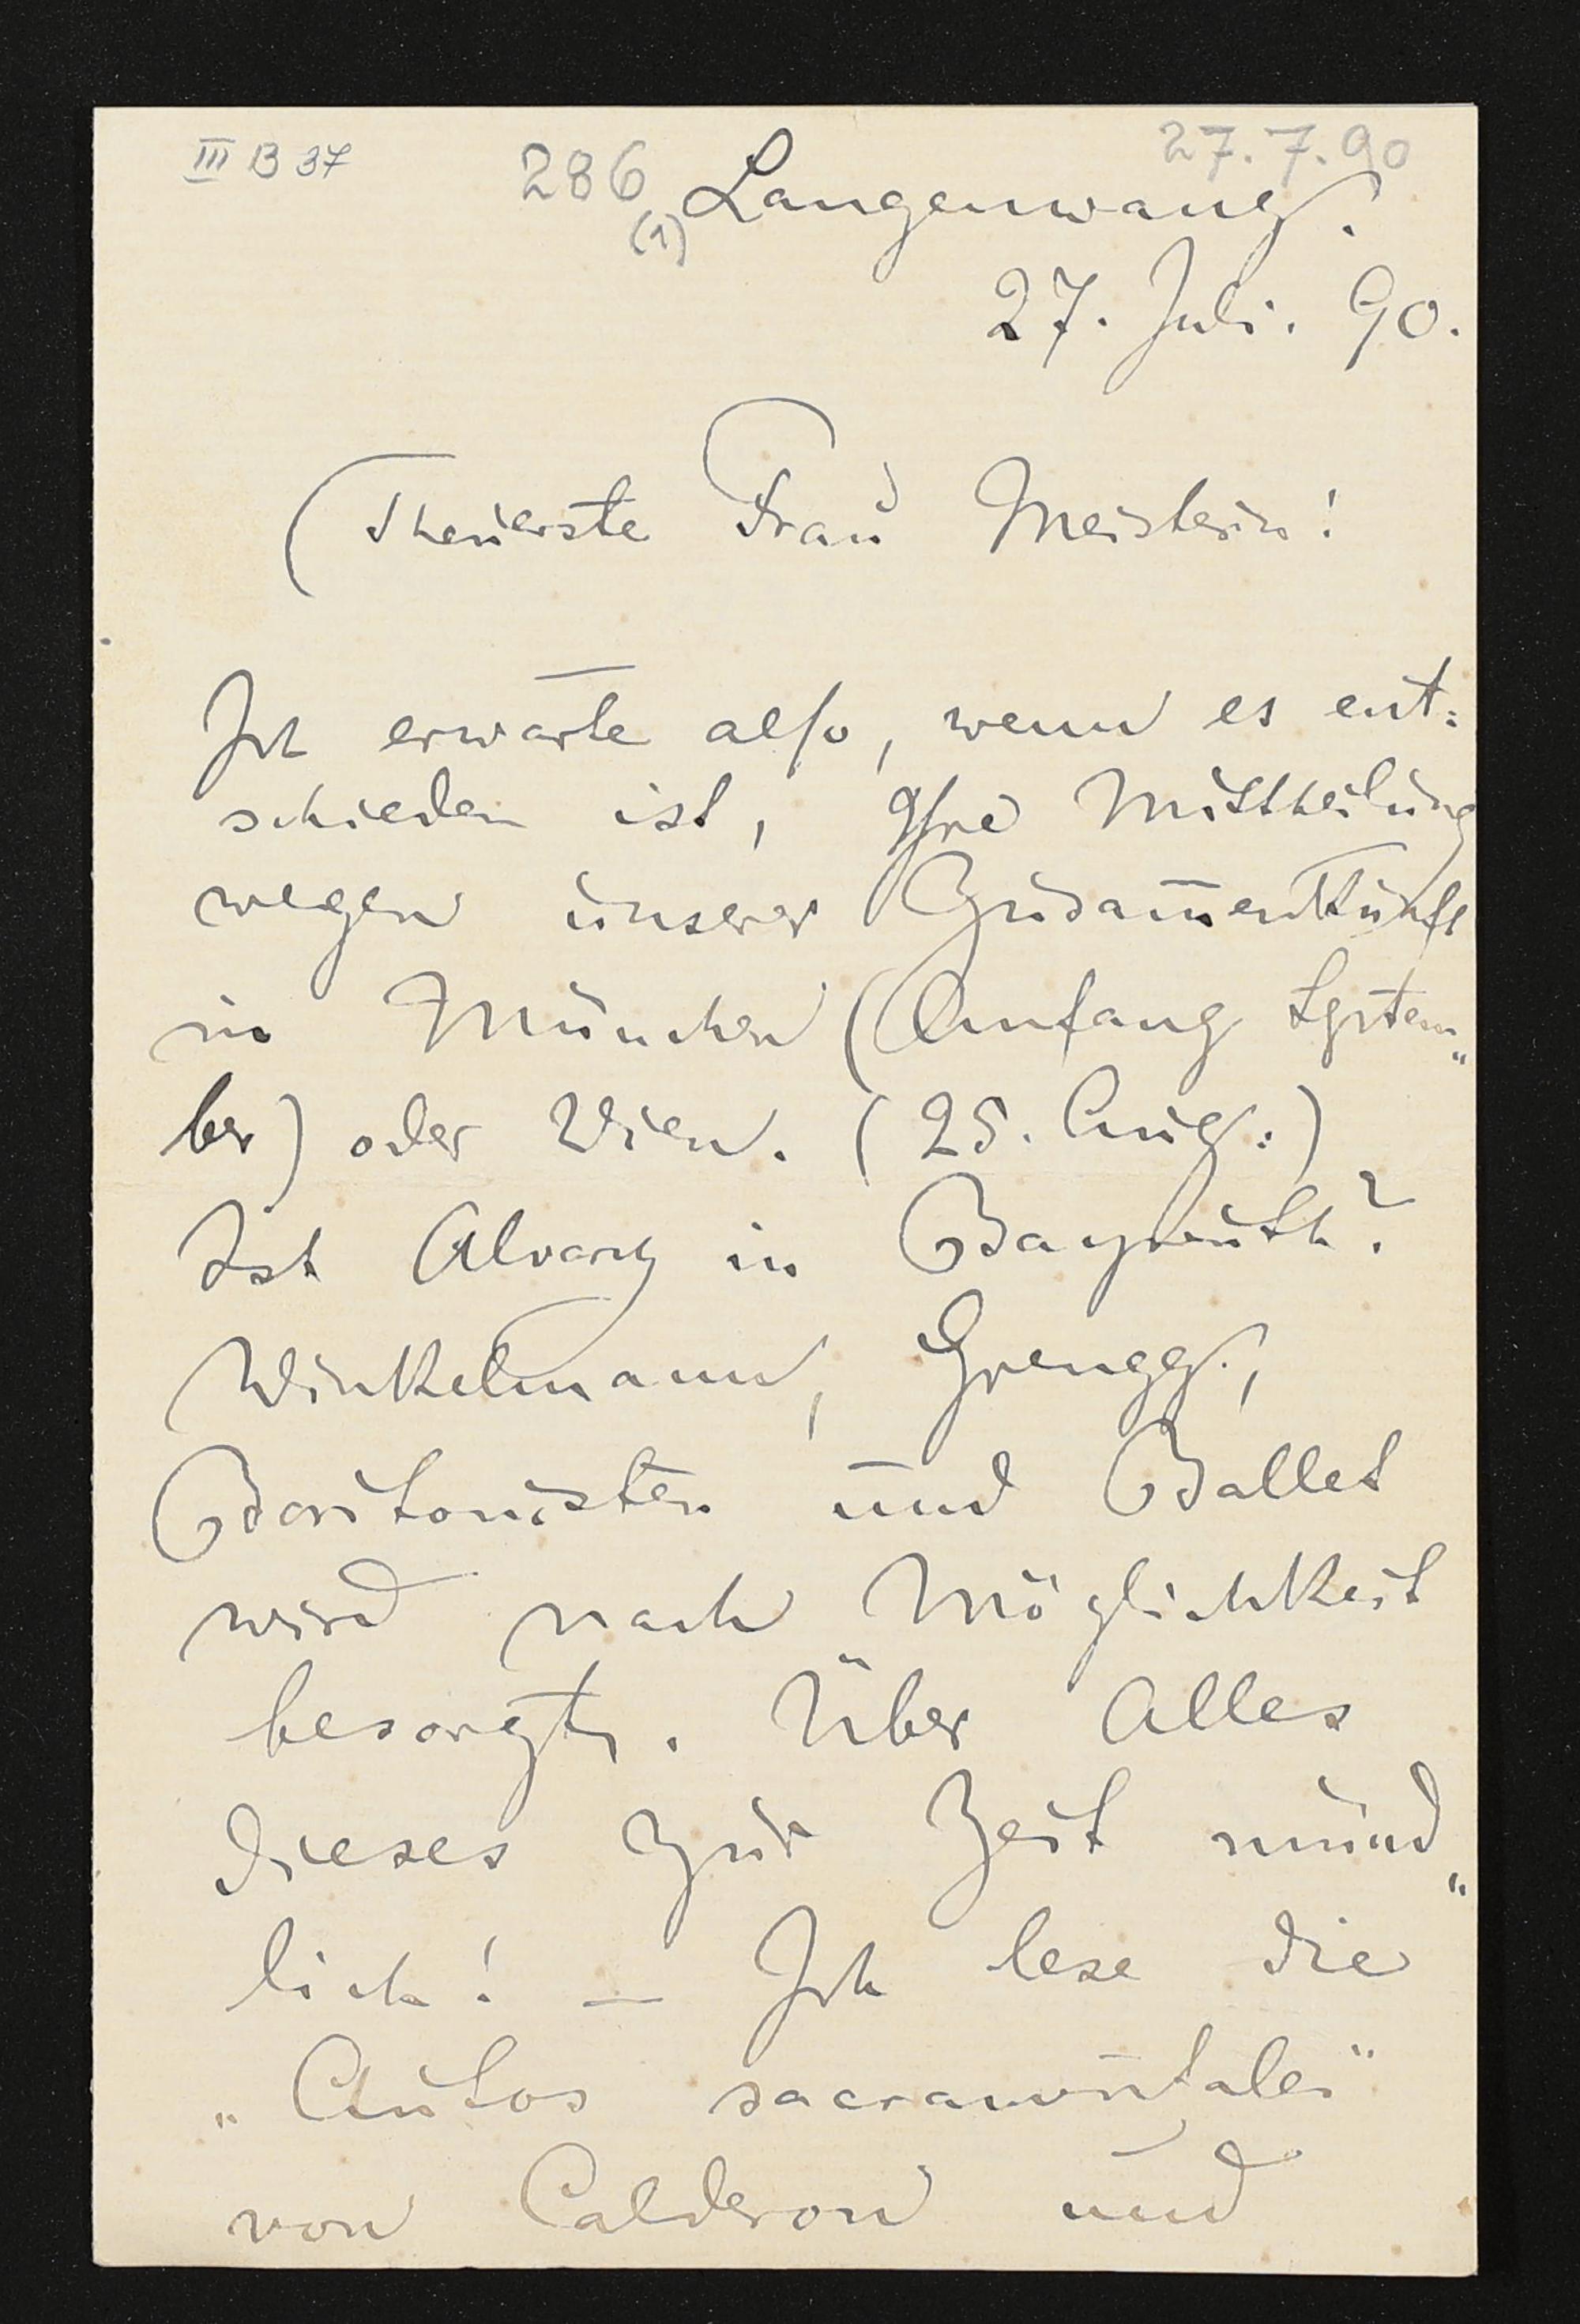 III B 37
286
(1)
27.7.90
Langenwang.
27. Juli. 90.
Theuerste Frau Meisterin!
Ich erwarte also, wenn es ent:
schieden ist, Ihre Mittheilung
wegen unserer Zusam̅enkunft
in München (Anfang Septem„
ber) oder Wien. (25. Aug.:)
Ist Alvary in Bayreuth?
Winkelmann, Grengg,
Baritonisten und Ballet
wird nach Möglichkeit
besorgt. Über Alles
dieses zur Zeit münd„
lich! — Ich lese die
„Autos sacramentales"
von Calderon und